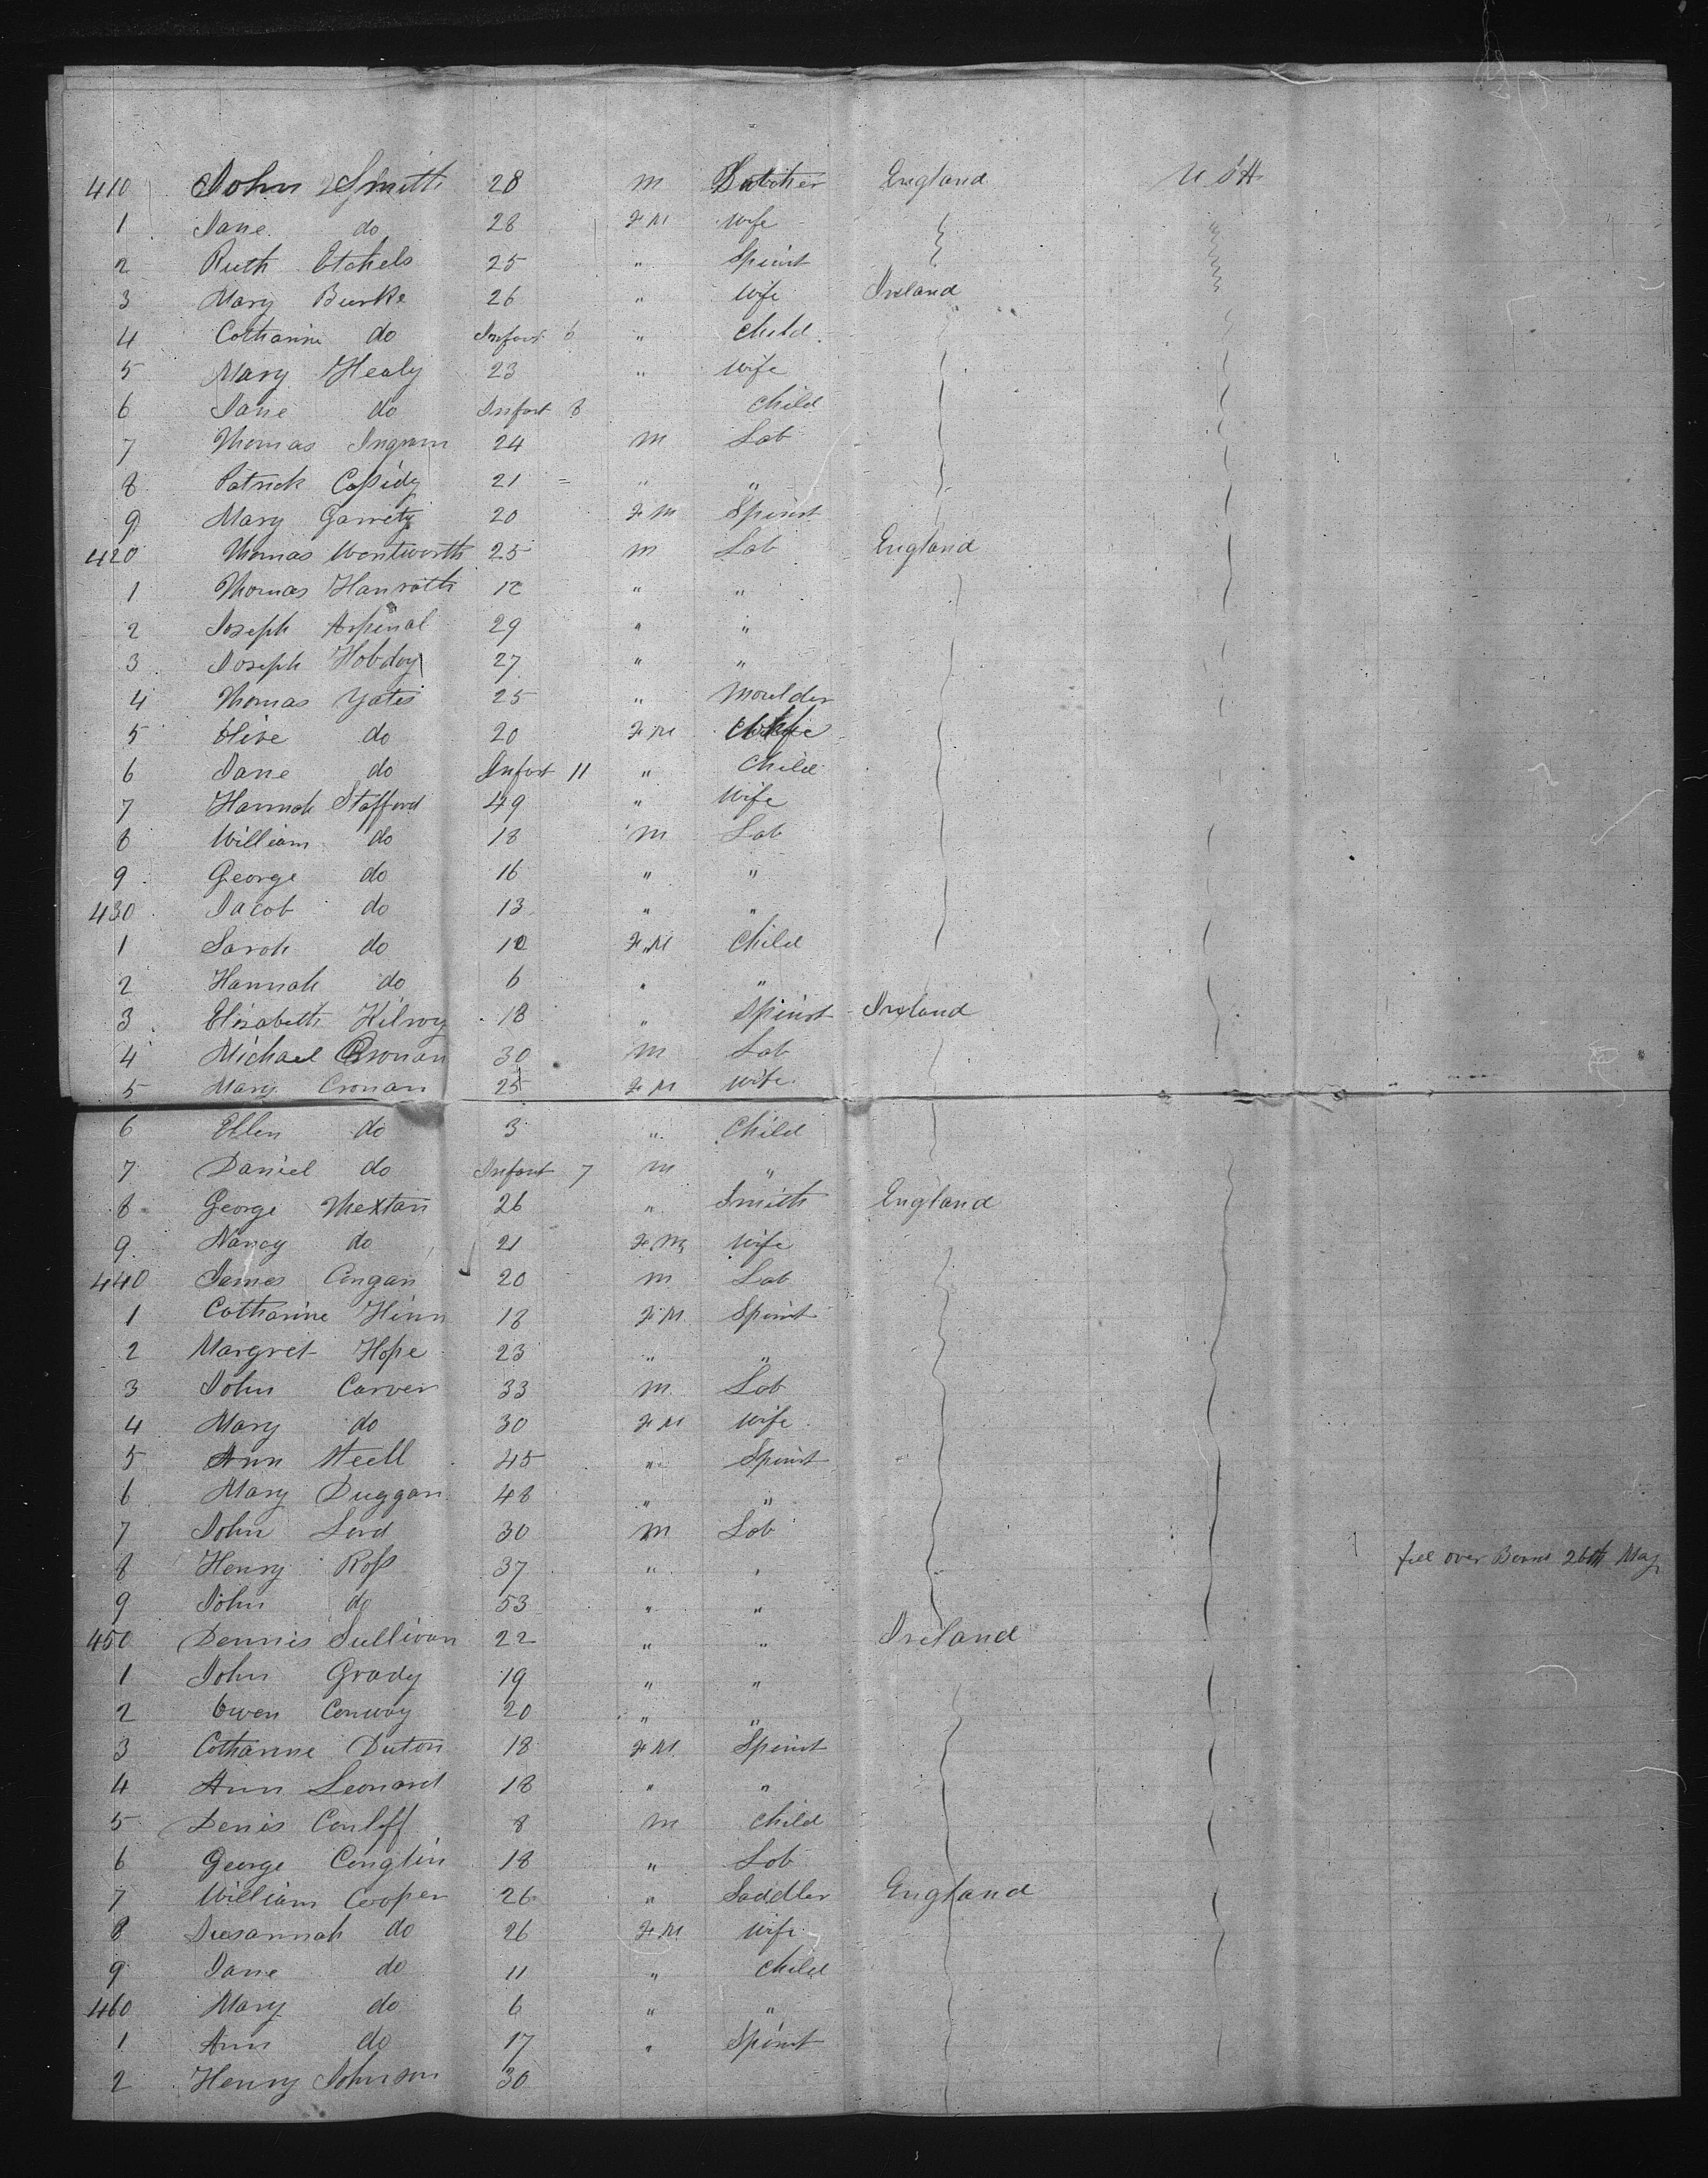 410 John Smith 28 m Butcher England U S A
1 Jane do 28 Fm Wife
2 Ruth Etchels 25 " Spinst
3 Mary Burke 26 " Wife Ireland
4 Catharine do Infant 6 " Child
5 Mary Healy 23 " Wife
6 Jane do Infant 8 Child
7 Thomas Ingram 24 m Lab
8 Patrick Cassidy 21 " "
9 Mary Garrety 20 Fm Spinst
420 Thomas Wentworth 25 m Lab England
1 Thomas Hanrath 12 " "
2 Joseph Aspinal 29 " "
3 Joseph Hobday 27 " "
4 Thomas Yates 25 " Moulder
5 Olive do 20 Fm Wife
6 Jane do Infant 11 " Child
7 Hannah Stafford 49 " Wife
8 William do 18 m Lab
9 George do 16 " "
430 Jacob do 13 " "
1 Sarah do 10 Fm Child
2 Hannah do 6 " "
3 Elisabeth Kilroy 18 " Spinst Ireland
4 Michael Cronan 30 m Lab
5 Mary Cronan 25 Fm Wife
6 Ellen do 3 " Child
7 Daniel do Infant 7 m "
8 George Mextan 26 " Smith England
9 Nancy do 21 Fm Wife
440 James Congan 20 m Lab
1 Catharine Hinn 18 Fm Spinst
2 Margret Hope 23 " "
3 John Carver 33 m Lab
4 Mary do 30 Fm Wife
5 Ann Steell 45 " Spinst
6 Mary Duggan 48 " "
7 John Lord 30 m Lab
8 Henry Ross 37 " " fell over Bows 26th May
9 John do 53 " "
450 Dennis Sullivan 22 " " Ireland
1 John Grady 19 " "
2 Owen Conway 20 " "
3 Catharine Duton 18 Fm Spinst
4 Ann Leonard 18 " "
5 Denis Conloff 8 m Child
6 George Conglin 18 " Lab
7 William Cooper 26 " Saddler England
8 Susannah do 26 Fm Wife
9 Jane do 11 " Child
460 Mary do 6 " "
1 Ann do 17 " Spinst
2 Henry Johnson 30